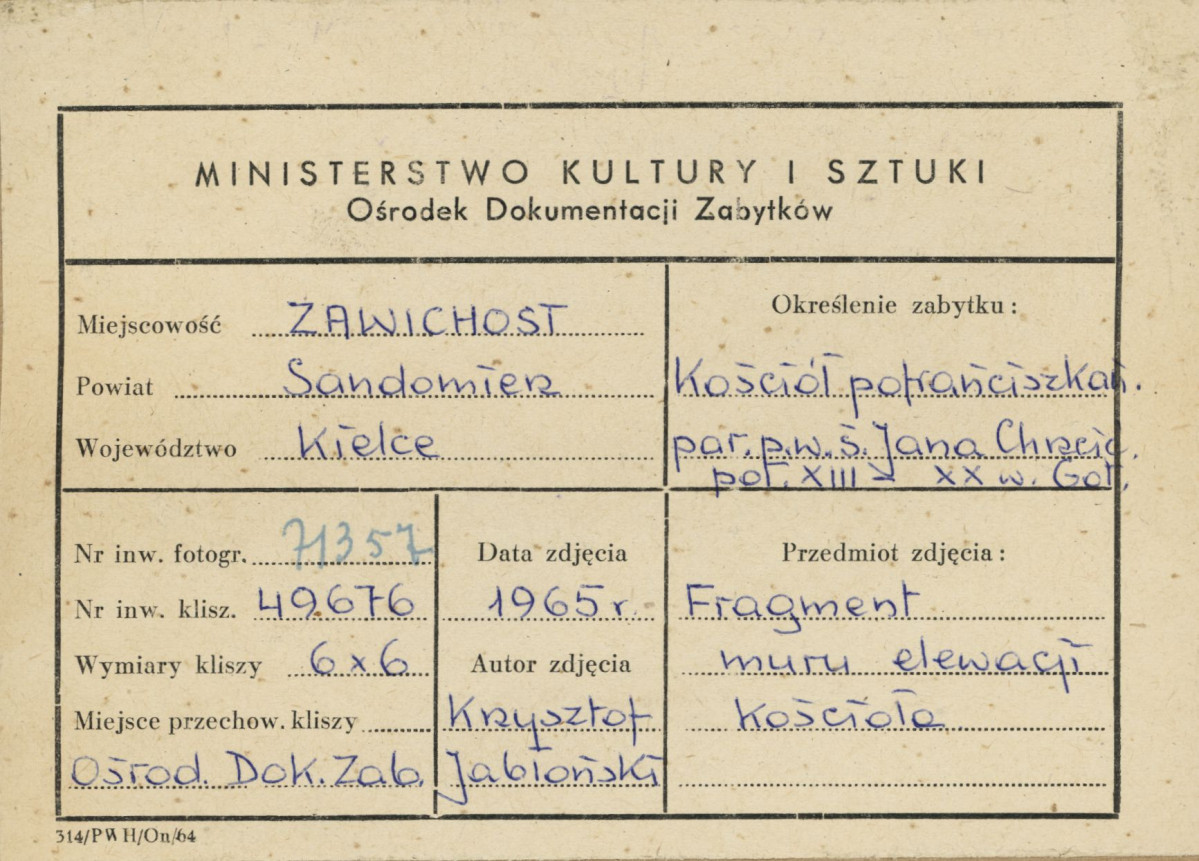 MINISTERSTWO KULTURY I SZTUKI
Ośrodek Dokumentacji Zabytków
Miejscowość ZAWICHOST
Powiat Sandomierz
Województwo Kielce
Określenie zabytku:
Kościół pofrańciszkań.
par. p.w. ś. Jana Chrzcic.
poł. XIII - XX w. Got.
Nr inw. fotogr. 71357
Nr inw. klisz. 49676
Wymiary kliszy 6x6
Miejsce przechow. kliszy
Ośrod. Dok. Zab.
Data zdjęcia
1965 r.
Autor zdjęcia
Krzysztof
Jabłoński
Przedmiot zdjęcia:
Fragment
muru elewacji
kościoła
314/PWH/On/64